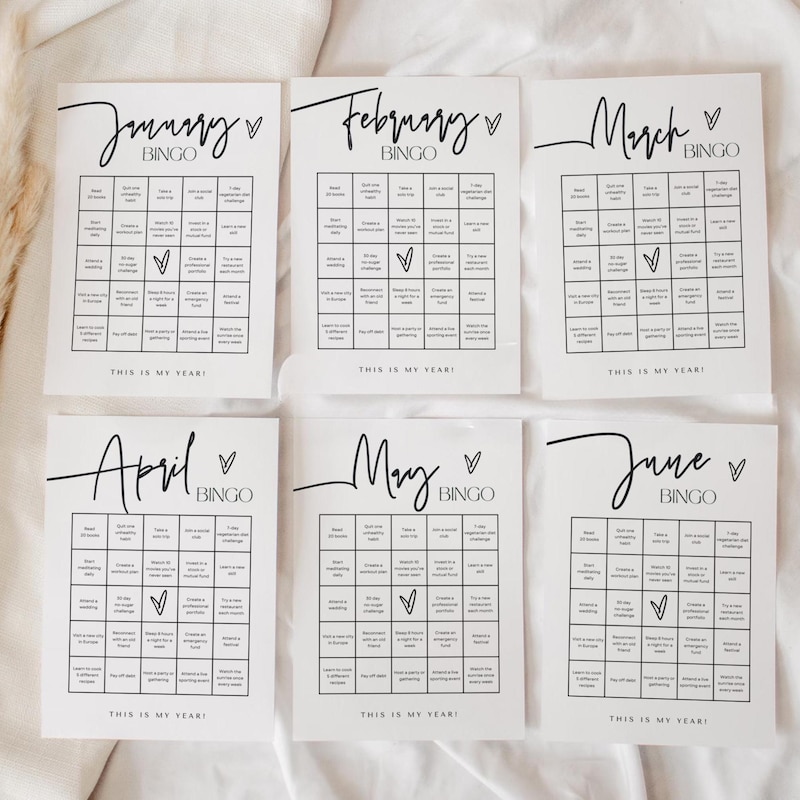 January
BINGO
Read
20 books
Quit one
unhealthy
habit
Take a
solo trip
Join a social
club
7-day
vegetarian diet
challenge
Start
meditating
daily
Create a
workout plan
Watch 10
movies you've
never seen
Invest in a
stock or
mutual fund
Learn a new
skill
Attend a
wedding
30 day
no-sugar
challenge
Create a
professional
portfolio
Try a new
restaurant
each month
Visit a new city
in Europe
Reconnect
with an old
friend
Sleep 8 hours
a night for a
week
Create an
emergency
fund
Attend a
festival
Learn to cook
5 different
recipes
Pay off debt
Host a party or
gathering
Attend a live
sporting event
Watch the
sunrise once
every week
THIS IS MY YEAR!
February
BINGO
Read
20 books
Quit one
unhealthy
habit
Take a
solo trip
Join a social
club
7-day
vegetarian diet
challenge
Start
meditating
daily
Create a
workout plan
Watch 10
movies you've
never seen
Invest in a
stock or
mutual fund
Learn a new
skill
Attend a
wedding
30 day
no-sugar
challenge
Create a
professional
portfolio
Try a new
restaurant
each month
Visit a new city
in Europe
Reconnect
with an old
friend
Sleep 8 hours
a night for a
week
Create an
emergency
fund
Attend a
festival
Learn to cook
5 different
recipes
Pay off debt
Host a party or
gathering
Attend a live
sporting event
Watch the
sunrise once
every week
THIS IS MY YEAR!
March
BINGO
Read
20 books
Quit one
unhealthy
habit
Take a
solo trip
Join a social
club
7-day
vegetarian diet
challenge
Start
meditating
daily
Create a
workout plan
Watch 10
movies you've
never seen
Invest in a
stock or
mutual fund
Learn a new
skill
Attend a
wedding
30 day
no-sugar
challenge
Create a
professional
portfolio
Try a new
restaurant
each month
Visit a new city
in Europe
Reconnect
with an old
friend
Sleep 8 hours
a night for a
week
Create an
emergency
fund
Attend a
festival
Learn to cook
5 different
recipes
Pay off debt
Host a party or
gathering
Attend a live
sporting event
Watch the
sunrise once
every week
THIS IS MY YEAR!
April
BINGO
Read
20 books
Quit one
unhealthy
habit
Take a
solo trip
Join a social
club
7-day
vegetarian diet
challenge
Start
meditating
daily
Create a
workout plan
Watch 10
movies you've
never seen
Invest in a
stock or
mutual fund
Learn a new
skill
Attend a
wedding
30 day
no-sugar
challenge
Create a
professional
portfolio
Try a new
restaurant
each month
Visit a new city
in Europe
Reconnect
with an old
friend
Sleep 8 hours
a night for a
week
Create an
emergency
fund
Attend a
festival
Learn to cook
5 different
recipes
Pay off debt
Host a party or
gathering
Attend a live
sporting event
Watch the
sunrise once
every week
THIS IS MY YEAR!
May
BINGO
Read
20 books
Quit one
unhealthy
habit
Take a
solo trip
Join a social
club
7-day
vegetarian diet
challenge
Start
meditating
daily
Create a
workout plan
Watch 10
movies you've
never seen
Invest in a
stock or
mutual fund
Learn a new
skill
Attend a
wedding
30 day
no-sugar
challenge
Create a
professional
portfolio
Try a new
restaurant
each month
Visit a new city
in Europe
Reconnect
with an old
friend
Sleep 8 hours
a night for a
week
Create an
emergency
fund
Attend a
festival
Learn to cook
5 different
recipes
Pay off debt
Host a party or
gathering
Attend a live
sporting event
Watch the
sunrise once
every week
THIS IS MY YEAR!
June
BINGO
Read
20 books
Quit one
unhealthy
habit
Take a
solo trip
Join a social
club
7-day
vegetarian diet
challenge
Start
meditating
daily
Create a
workout plan
Watch 10
movies you've
never seen
Invest in a
stock or
mutual fund
Learn a new
skill
Attend a
wedding
30 day
no-sugar
challenge
Create a
professional
portfolio
Try a new
restaurant
each month
Visit a new city
in Europe
Reconnect
with an old
friend
Sleep 8 hours
a night for a
week
Create an
emergency
fund
Attend a
festival
Learn to cook
5 different
recipes
Pay off debt
Host a party or
gathering
Attend a live
sporting event
Watch the
sunrise once
every week
THIS IS MY YEAR!